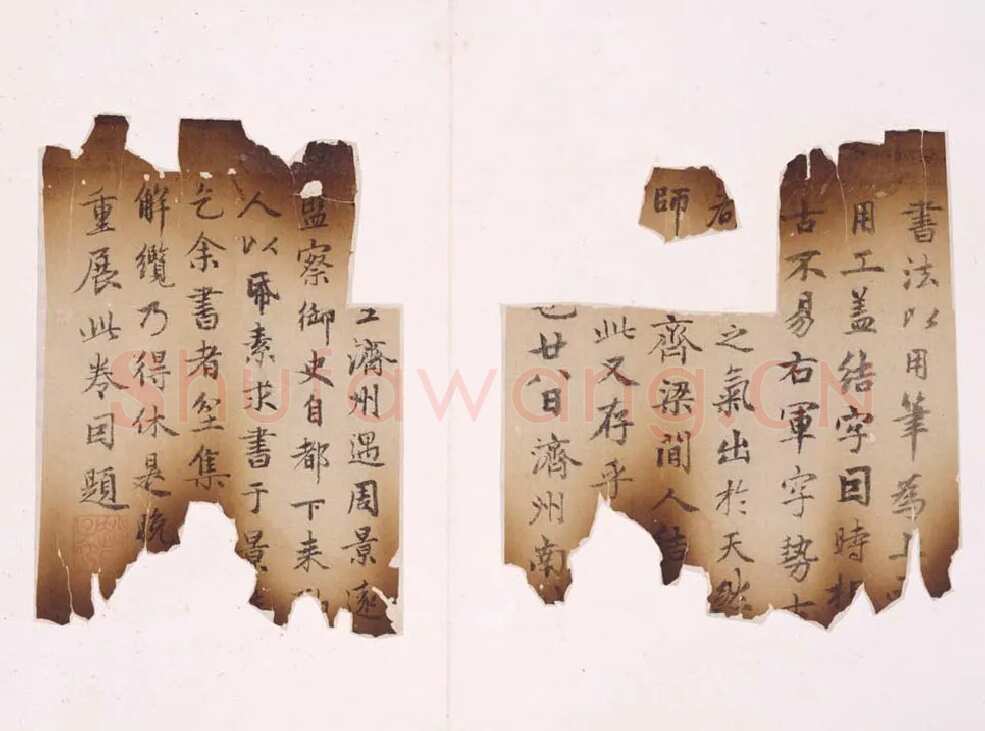 書法以用筆為上
用工盖结字因時相
古不易右軍字势古
者之氣出於天然
師齊梁間人结
此又存乎
也廿八日濟州南
濟州遇周景遠
監察御史自都下来
人以帋素求書于景
乞余書者坌集
解纜乃得休是晚
重展此卷因題
Shufawang.CN